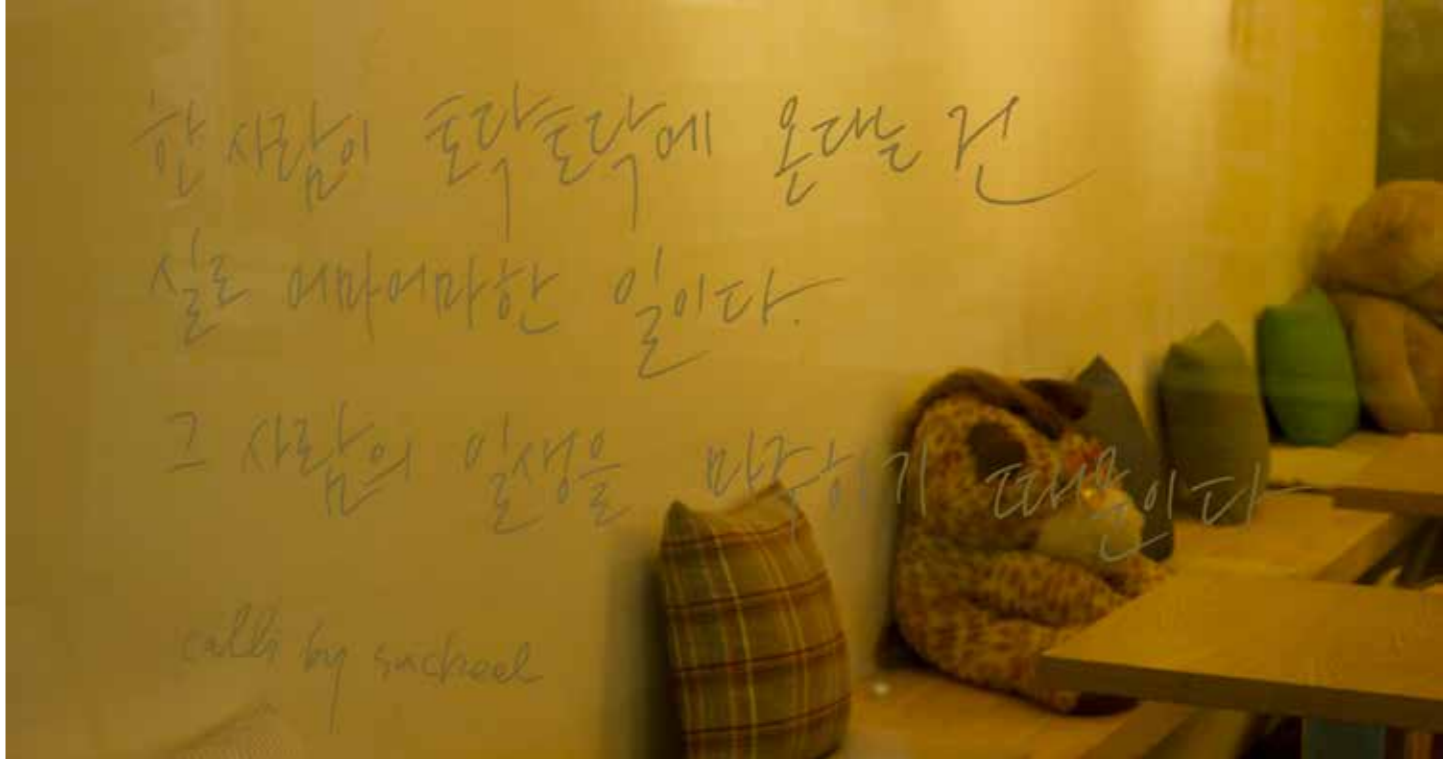 한 사람이 토닥토닥에 온다는 건
실로 어마어마한 일이다.
그 사람의 일생을 마주하기 때문이다
calli by sucheol